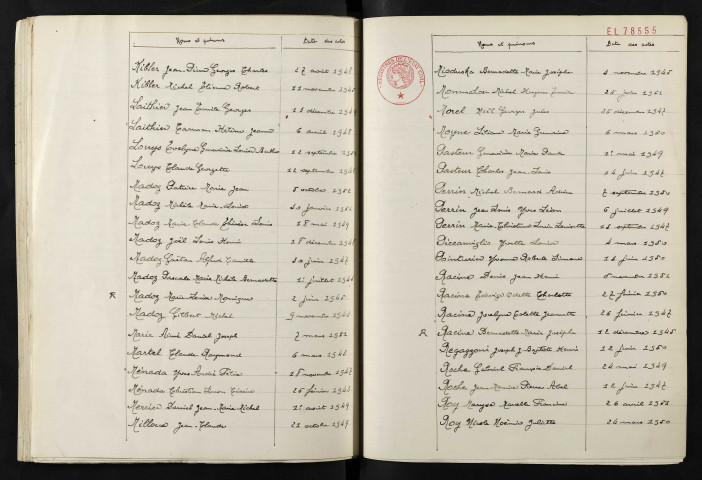 Noms et prénoms Date des actes
Kibler Jean Pierre Georges Charles 17 août 1948
Kibler Michel Etienne Robert 11 novembre 1945
Laithier Jean Camille Georges 18 décembre 1949
Laithier Carmen Jeanne 6 avril 1948
Lonys Evelyne Geneviève 12 septembre
Lonys Claude Georgette 12 septembre
Madoz Patrice Marie Jean 5 octobre 1952
Madoz Michèle Marie 20 janvier 1952
Madoz Marie Claude Louis 18 mai 1949
Madoz Joël Louis Henri 18 décembre 1948
Madoz Gaëtan Alfred Camille 20 juin 1947
Madoz Pascale Marie Michèle Bernadette 1er juillet 1946
R Madoz Marie Louise Monique 2 juin 1945
Madoz Gilbert Michel 9 novembre
Marie Aimé Daniel Joseph 7 mars 1952
Martel Claude Raymond 6 mars 1948
Ménada Yves André 18 novembre 1947
Ménada Christian Simon 26 février 1946
Mercier Daniel Jean Marie Michel 1er août 1949
Milloux Jean Claude 21 octobre 1949
EL 78555
Noms et prénoms Date des actes
Miaduska Bernadette Marie Josèphe 1 novembre 1945
Michel 25 juin 1952
Morel Georges Jules 25 décembre 1947
Moyne Liliane Marie 6 mars 1950
Pasteur Geneviève Marie Paule 1er mai 1949
Pasteur Charles Jean Louis 14 juin 1947
Perrin Michel Bernard 7 septembre 1950
Perrin Jean Louis Yves Léon 6 juillet 1949
Perrin Marie Christiane septembre 1947
Piccamiglio Yvette Louise 4 mars 1950
Yvonne Simone 16 juin 1950
Racine Denis Jean Henri 5 novembre 1952
Racine Odette Charlotte 27 février 1950
Racine Jocelyne Colette Jeannette 26 février 1947
R Racine Bernadette Marie Josèphe 12 décembre 1945
Regazzoni Joseph J Baptiste Henri 12 juin 1950
Roche Gabriel François Daniel 24 mai 1949
Roche Jean Marie 12 juin 1947
Roy Maryse Marcelle Francine 26 avril 1952
Roy Nicole Noémie Juliette 26 mars 1950